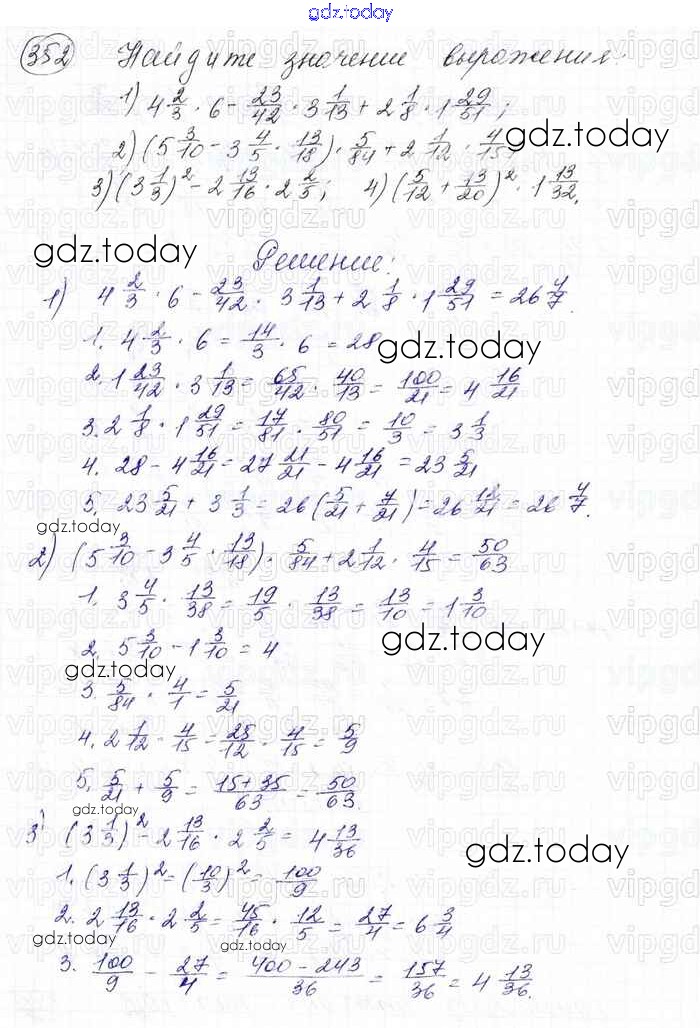 gdz.today
352 Найдите значение выражения:
1) 4 2/3 · 6 - 23/42 · 3 1/13 + 2 1/8 · 1 29/51;
2) (5 3/10 - 3 4/5 · 13/18) · 5/84 + 2 1/12 · 4/15
gdz.today
3) (3 1/3)² - 2 13/16 · 2 2/5; 4) (5/12 + 13/20)² · 1 13/32.
gdz.today
Решение:
1) 4 2/3 · 6 - 23/42 · 3 1/13 + 2 1/8 · 1 29/51 = 26 4/7.
1. 4 2/3 · 6 = 14/3 · 6 = 28
gdz.today
2. 1 23/42 · 3 1/13 = 65/42 · 40/13 = 100/21 = 4 16/21
3. 2 1/8 · 1 29/51 = 17/81 · 80/51 = 10/3 = 3 1/3
4. 28 - 4 16/21 = 27 21/21 - 4 16/21 = 23 5/21
5. 23 5/21 + 3 1/3 = 26 (5/21 + 7/21) = 26 12/21 = 26 4/7.
gdz.today
2) (5 3/10 - 3 4/5 · 13/18) · 5/84 + 2 1/12 · 4/15 = 50/63
1. 3 4/5 · 13/38 = 19/5 · 13/38 = 13/10 = 1 3/10
2. 5 3/10 - 1 3/10 = 4
gdz.today
gdz.today
3. 5/84 · 4/1 = 5/21
4. 2 1/12 - 4/15 = 25/12 · 4/15 = 5/9
5. 5/21 + 5/9 = (15+35)/63 = 50/63.
gdz.today
3) (3 1/3)² - 2 13/16 · 2 2/5 = 4 13/36
gdz.today
1. (3 1/3)² = (10/3)² = 100/9
2. 2 13/16 · 2 2/5 = 45/16 · 12/5 = 27/4 = 6 3/4
gdz.today gdz.today
3. 100/9 - 27/4 = (400 - 243)/36 = 157/36 = 4 13/36.